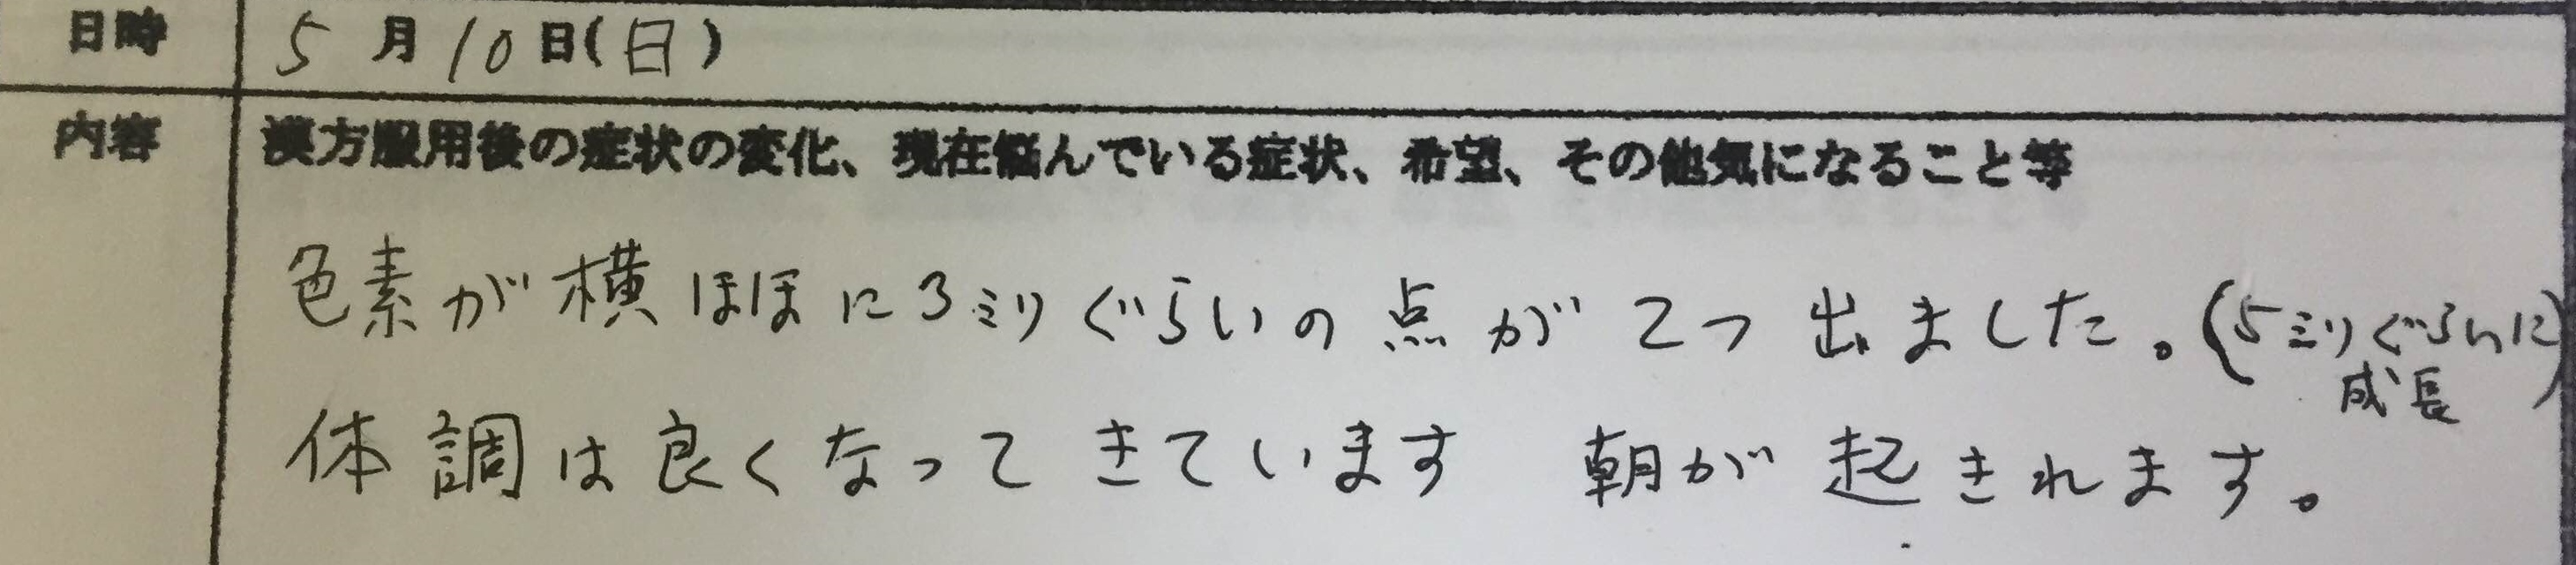 日時 5月10日(日)
内容 漢方服用後の症状の変化、現在悩んでいる症状、希望、その他気になること等
色素が横ほほに3ミリぐらいの点が2つ出ました。(5ミリぐらいに
成長)
体調は良くなってきています 朝が起きれます。